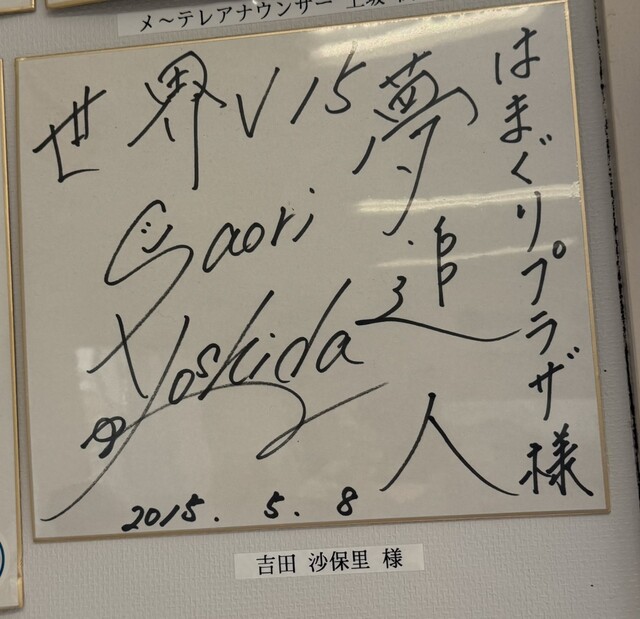 メ～テレアナウンサー 上坂
はまぐりプラザ様
夢追人
世界V15
Saori
Yoshida
2015. 5. 8
吉田 沙保里 様